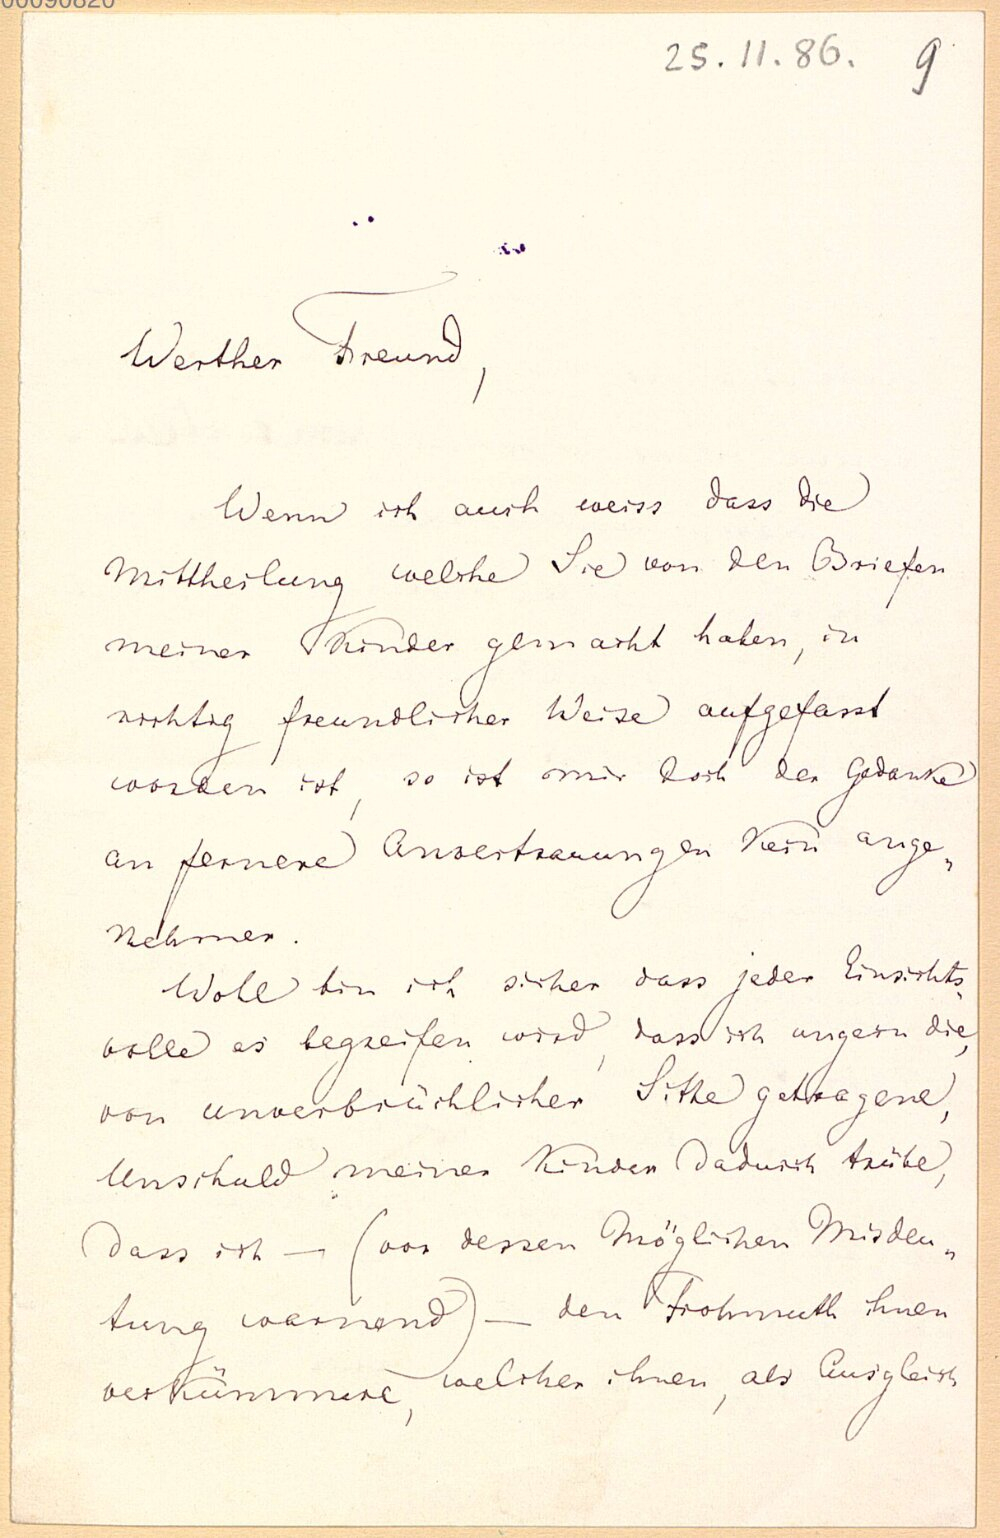 00090820
25.11.86. 9
Werther Freund,
Wenn ich auch weiss dass die
Mittheilung welche Sie von den Briefen
meiner Kinder gemacht haben, in
richtig freundlicher Weise aufgefasst
worden ist, so ist mir doch der Gedanke
an fernere Anvertrauungen kein ange„
nehmer.
Wohl bin ich sicher dass jeder Einsichts„
volle es begreifen wird, dass ich ungern die,
von unverbrüchlicher Sitte getragene,
Unschuld meiner Kinder dadurch trübe,
dass ich — (vor dessen möglichen Misdeu„
tung warnend) — den Frohmuth ihnen
verkümmere, welcher ihnen, als Ausgleich